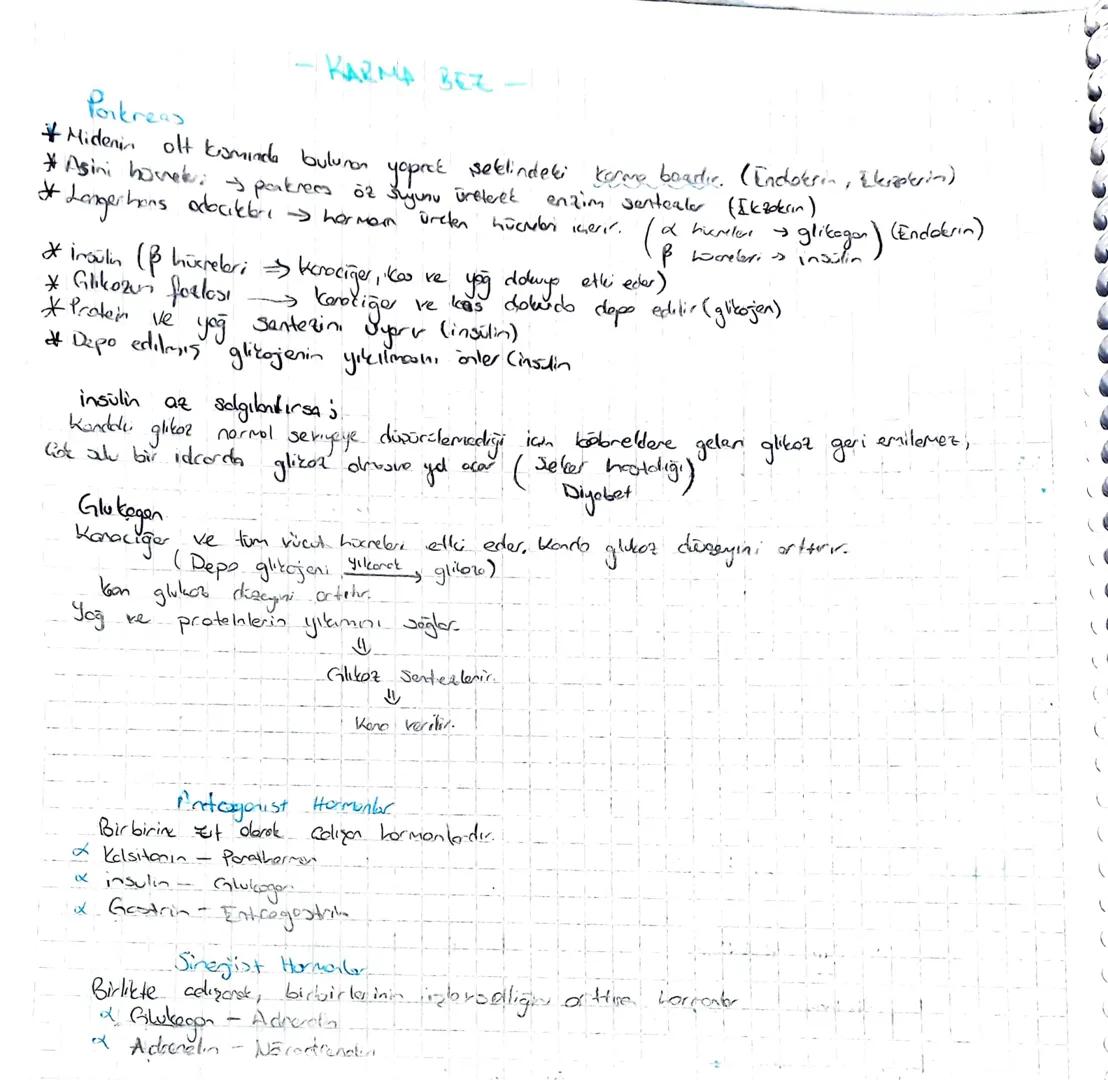 - KARMA BEZ -
Pankreas
* Midenin alt kısmında bulunan yaprak şeklindeki karma bezdir. (Endokrin, Ekzokrin)
* Asini hücreleri → pankreas öz suyunu üreterek enzim sentezler (Ekzokrin)
* Langerhans adacıkları → hormon üreten hücreleri içerir. (α hücreleri → glikagon) (Endokrin)
β hücreleri → insülin
* insülin (β hücreleri ⇒ Karaciğer, kas ve yağ dokuya etki eder)
* Glikozun fazlası → karaciğer ve kas dokuda depo edilir (glikojen)
* Protein ve yağ sentezini uyarır (insülin)
* Depo edilmiş glikojenin yıkılmasını önler (insülin
insülin az salgılanırsa;
Kandaki glikoz normal seviyeye düşürülemediği için böbreklere gelen glikoz geri emilemez,
bir idrarda glikoz olmasına yol açar (Şeker hastalığı)
Diyabet
Glukagon
Karaciğer ve tüm vücut hücreleri etki eder. Kanda glukoz düzeyini arttırır.
(Depo glikojeni yıkarak → glikoz)
kan glukoz düzeyini artırır.
Yağ ve proteinlerin yıkımını sağlar.
⇓
Glikoz sentezlenir.
⇓
Kana verilir.
Antagonist Hormonlar
Birbirine zıt olarak çalışan hormonlardır.
α Kalsitonin - Parathormon
α insulin - Glukagon
α Gastrin - Enterogastrin
Sinerjist Hormonlar
Birlikte çalışarak, birbirlerinin arttıran hormonlar
α Glukagon - Adrenalin
α Adrenalin - Noradrenalin